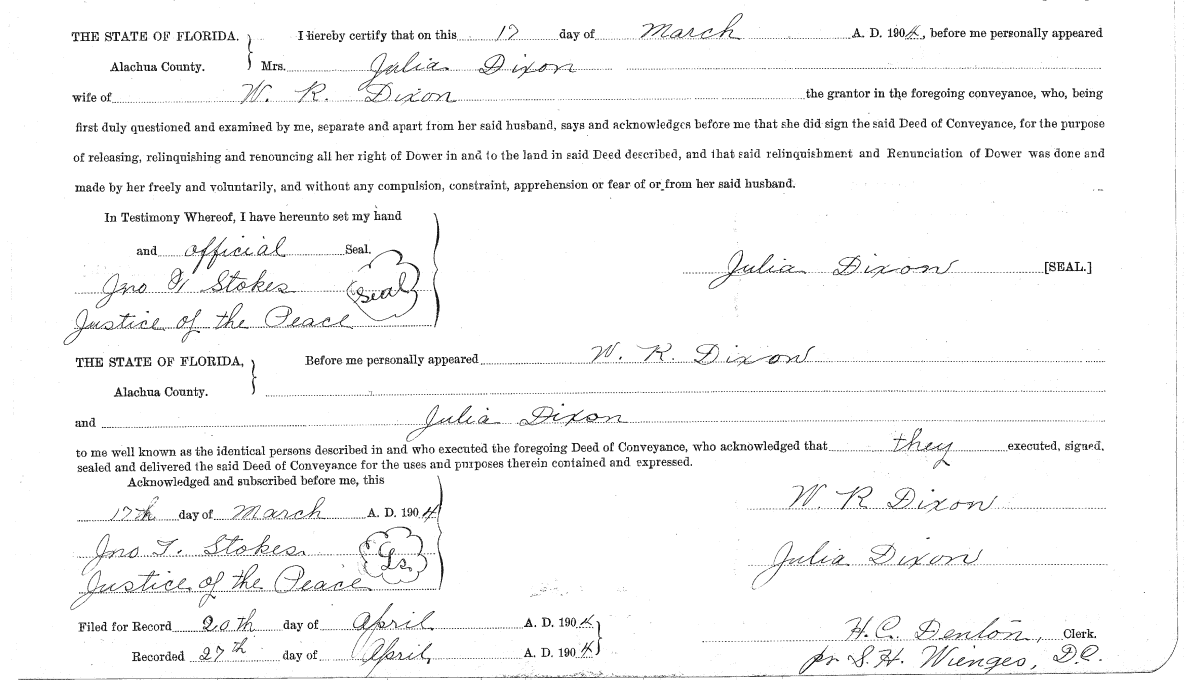 THE STATE OF FLORIDA, I hereby certify that on this 17 day of March A. D. 1904, before me personally appeared
Alachua County. Mrs. Julia Dixon
wife of W. R. Dixon the grantor in the foregoing conveyance, who, being
first duly questioned and examined by me, separate and apart from her said husband, says and acknowledges before me that she did sign the said Deed of Conveyance, for the purpose
of releasing, relinquishing and renouncing all her right of Dower in and to the land in said Deed described, and that said relinquishment and Renunciation of Dower was done and
made by her freely and voluntarily, and without any compulsion, constraint, apprehension or fear of or from her said husband.
In Testimony Whereof, I have hereunto set my hand
and official Seal.
Julia Dixon [SEAL.]
Jno Stokes Seal
Justice of the Peace
THE STATE OF FLORIDA, Before me personally appeared W. R. Dixon
Alachua County.
and Julia Dixon
to me well known as the identical persons described in and who executed the foregoing Deed of Conveyance, who acknowledged that they executed, signed,
sealed and delivered the said Deed of Conveyance for the uses and purposes therein contained and expressed.
Acknowledged and subscribed before me, this
17th day of March A. D. 1904
W. R Dixon
Jno T. Stokes Ls.
Julia Dixon
Justice of the Peace
Filed for Record 20th day of April A. D. 1904
H. C. Denton, Clerk.
Recorded 27th day of April, A. D. 1904
pr S. H. Wienges, D.C.